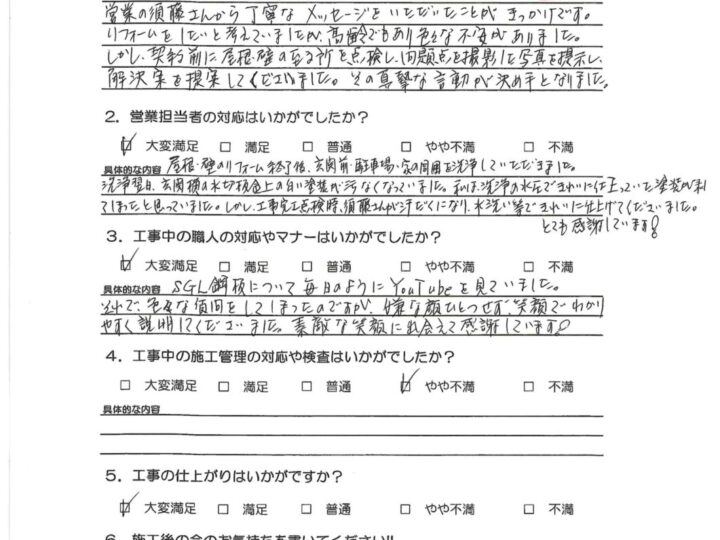 営業の須藤さんから丁寧なメッセージをいただいたことがきっかけです。
リフォームをしたいと考えていましたが、高齢でもあり色々な不安がありました。
しかし、契約前に屋根・壁の至る所を点検し、問題点を撮影した写真を提示し、
解決案を提案してくださいました。その真摯な言動が決め手となりました。
2. 営業担当者の対応はいかがでしたか？
☑ 大変満足 □ 満足 □ 普通 □ やや不満 □ 不満
具体的な内容 屋根・壁のリフォーム終了後、玄関前・駐車場・家の周囲を洗浄していただきました。
洗浄翌日、玄関横の水切板金上の白い塗装が汚くなっていました。私は、洗浄の水圧できれいに仕上っていた塗装が
てしまったと思っていました。しかし、工事完工点検時、須藤さんが汗だくになり、水洗い等できれいに仕上げてくださいました。
とても感謝しています！
3. 工事中の職人の対応やマナーはいかがでしたか？
☑ 大変満足 □ 満足 □ 普通 □ やや不満 □ 不満
具体的な内容 SGL鋼板について毎日のようにYouTubeを見ていました。
それで、色々な質問をしてしまったのですが、嫌な顔ひとつせず、笑顔でわかり
やすく説明してくださいました。素敵な笑顔に出会えて感謝しています！
4. 工事中の施工管理の対応や検査はいかがでしたか？
□ 大変満足 □ 満足 □ 普通 ☑ やや不満 □ 不満
具体的な内容
5. 工事の仕上がりはいかがですか？
☑ 大変満足 □ 満足 □ 普通 □ やや不満 □ 不満
6. 施工後の今のお気持ちを書いてください!!